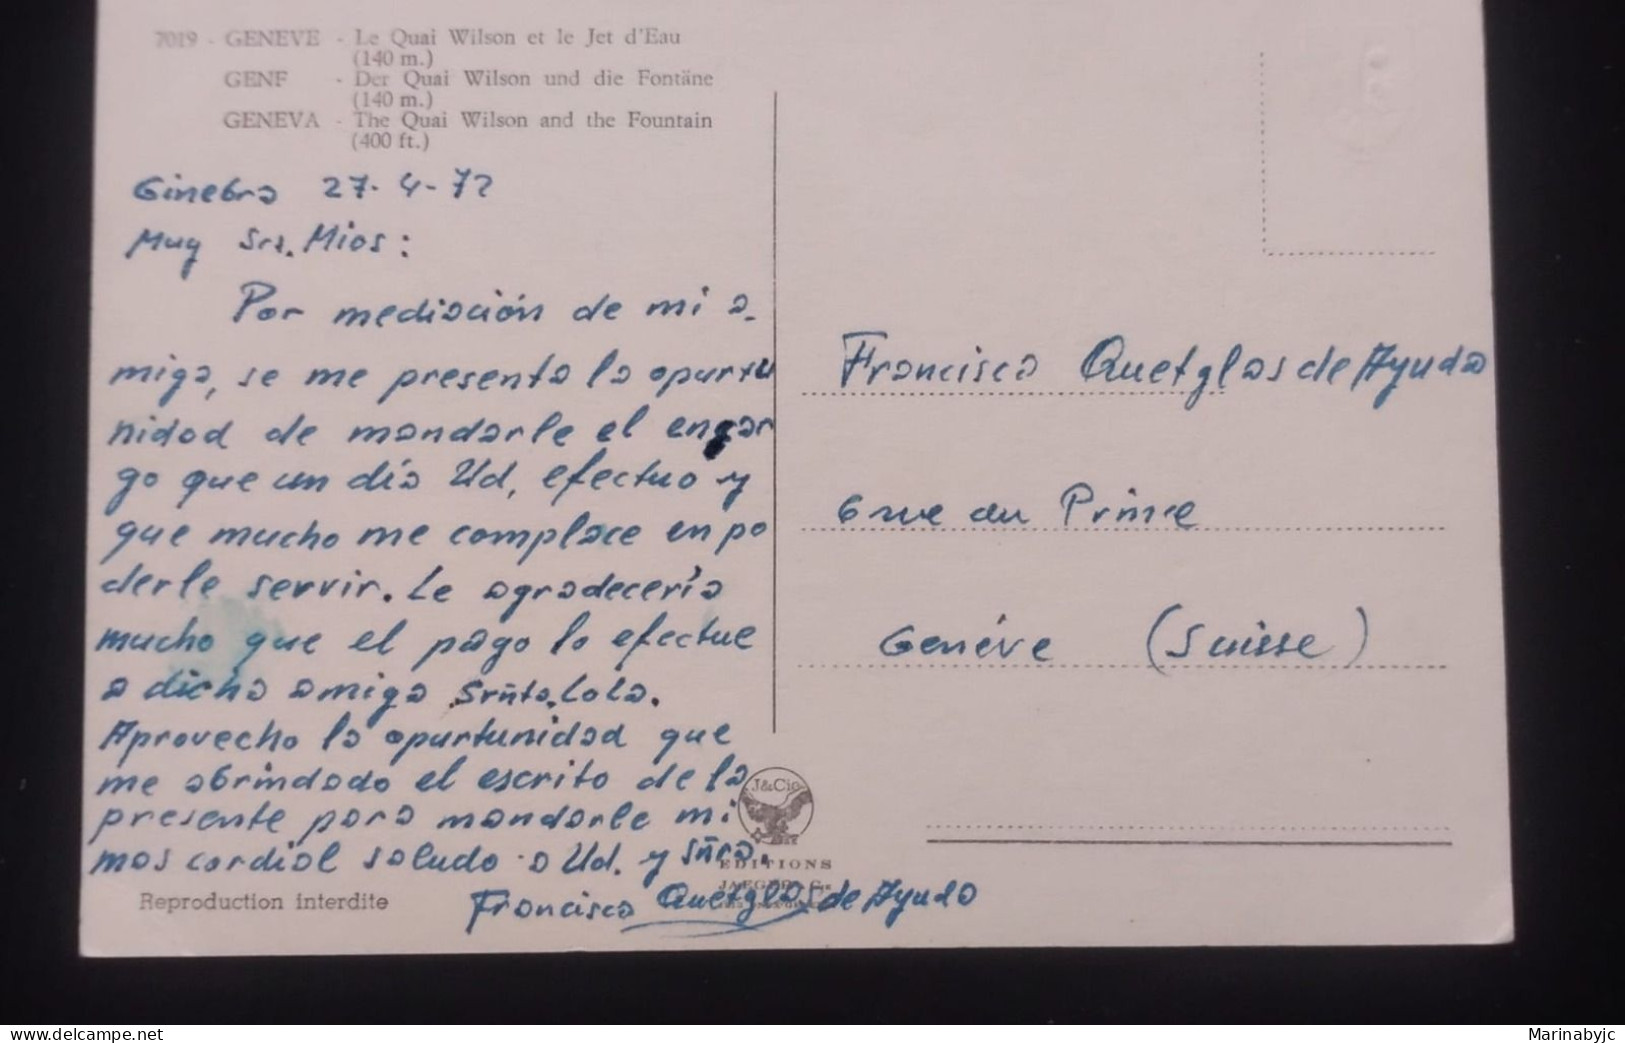 7019 - GENEVE - Le Quai Wilson et le Jet d'Eau
(140 m.)
GENF - Der Quai Wilson und die Fontäne
(140 m.)
GENEVA - The Quai Wilson and the Fountain
(400 ft.)
Ginebra 27-4-72
Muy Srs. Mios:
Por mediación de mi a-
miga, se me presenta la oportu
nidad de mandarle el engar
go que un día Ud, efectuo y
que mucho me complace en po
derle servir. Le agradecería
mucho que el pago lo efectue
a dicha amiga Srñta. Lola.
Aprovecho la oportunidad que
me abrindado el escrito de la
presente para mandarle mi
mas cordial saludo a Ud. y Sñra.
Francisca Quetglas de Ayuda
Francisca Quetglas de Ayuda
6 rue du Prince
Genéve (Suisse)
J&Cie
EDITIONS
Reproduction interdite
delcampe.net
Marinabyjc